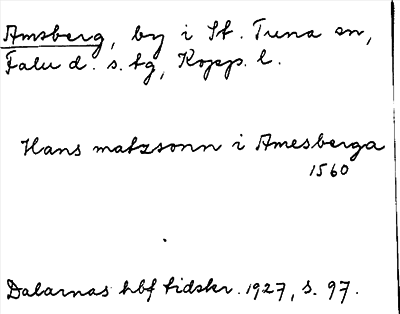 Amsberg, by i St. Tuna sn,
Falu d. s. tg, Kopp. l.
Hans matzsonn i Amesberga
1560
Dalarnas hbf tidskr. 1927, s. 97.